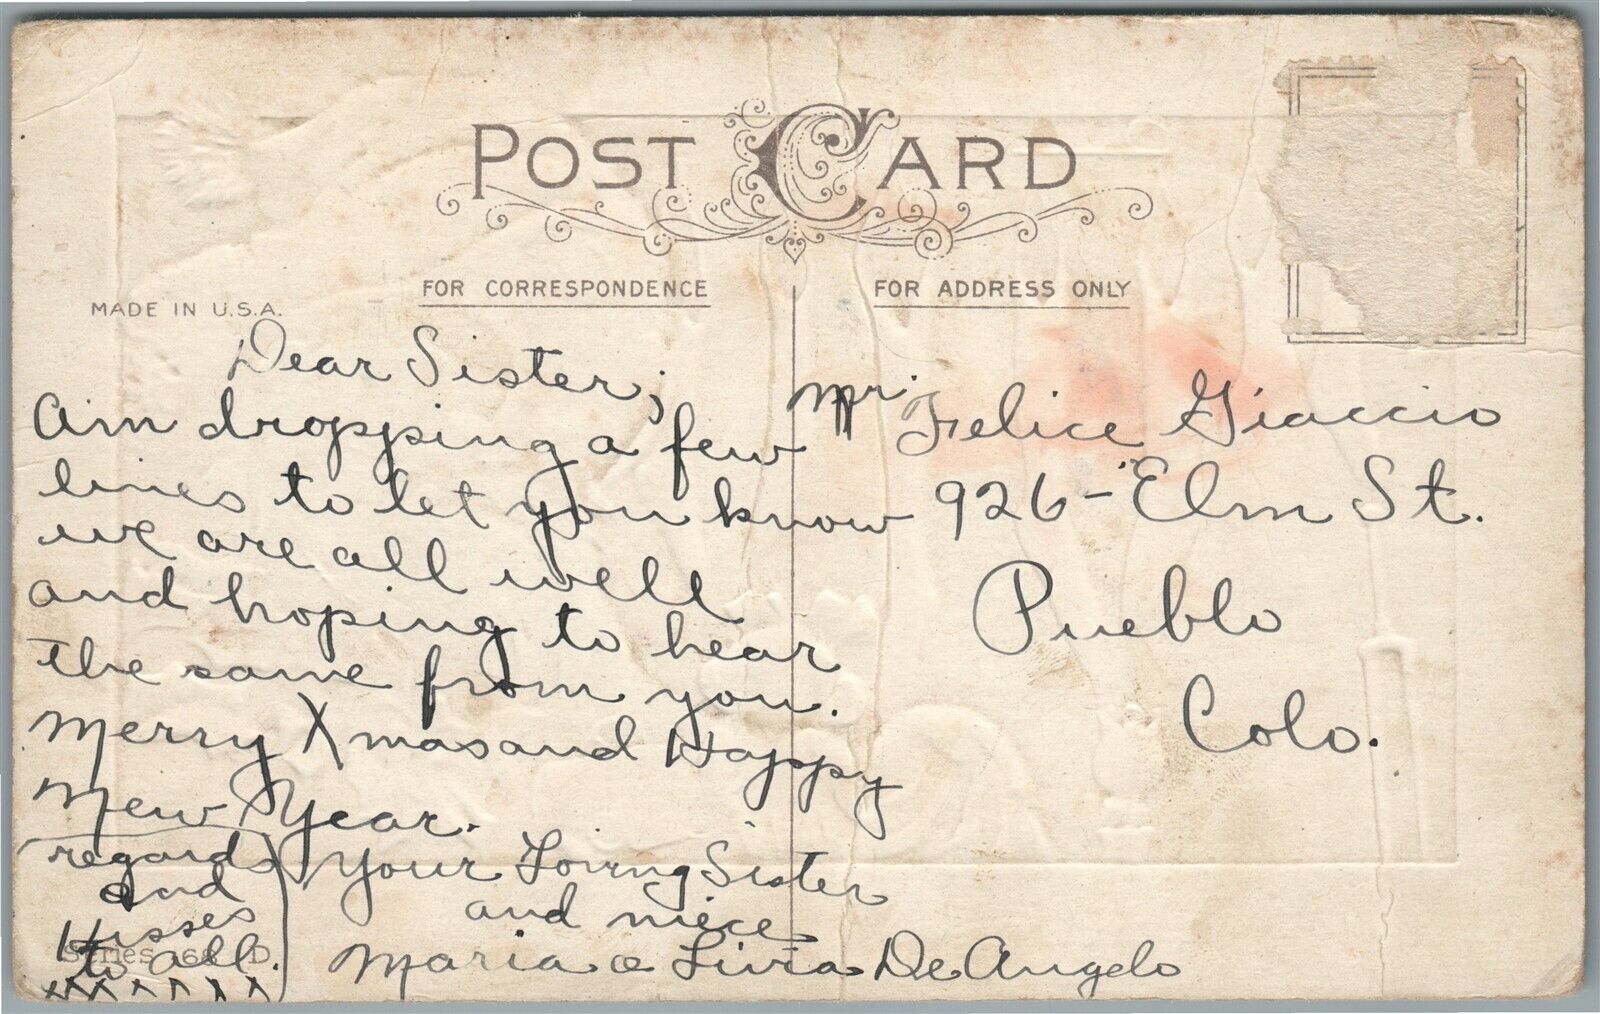 POST CARD
FOR CORRESPONDENCE
FOR ADDRESS ONLY
MADE IN U.S.A.
Dear Sister;
Am dropping a few
lines to let you know
we are all well
and hoping to hear
the same from you.
Merry Xmas and Happy
New Year.
Your Loving Sister
and niece
Maria & Livia De Angelo
regards
and
Kisses
to all.
Series 66 D.
Mr. Felice Giaccio
926 - Elm St.
Pueblo
Colo.